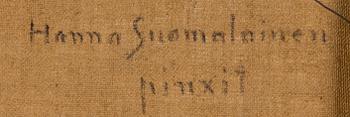 Hanna Suomalainen
pinxit